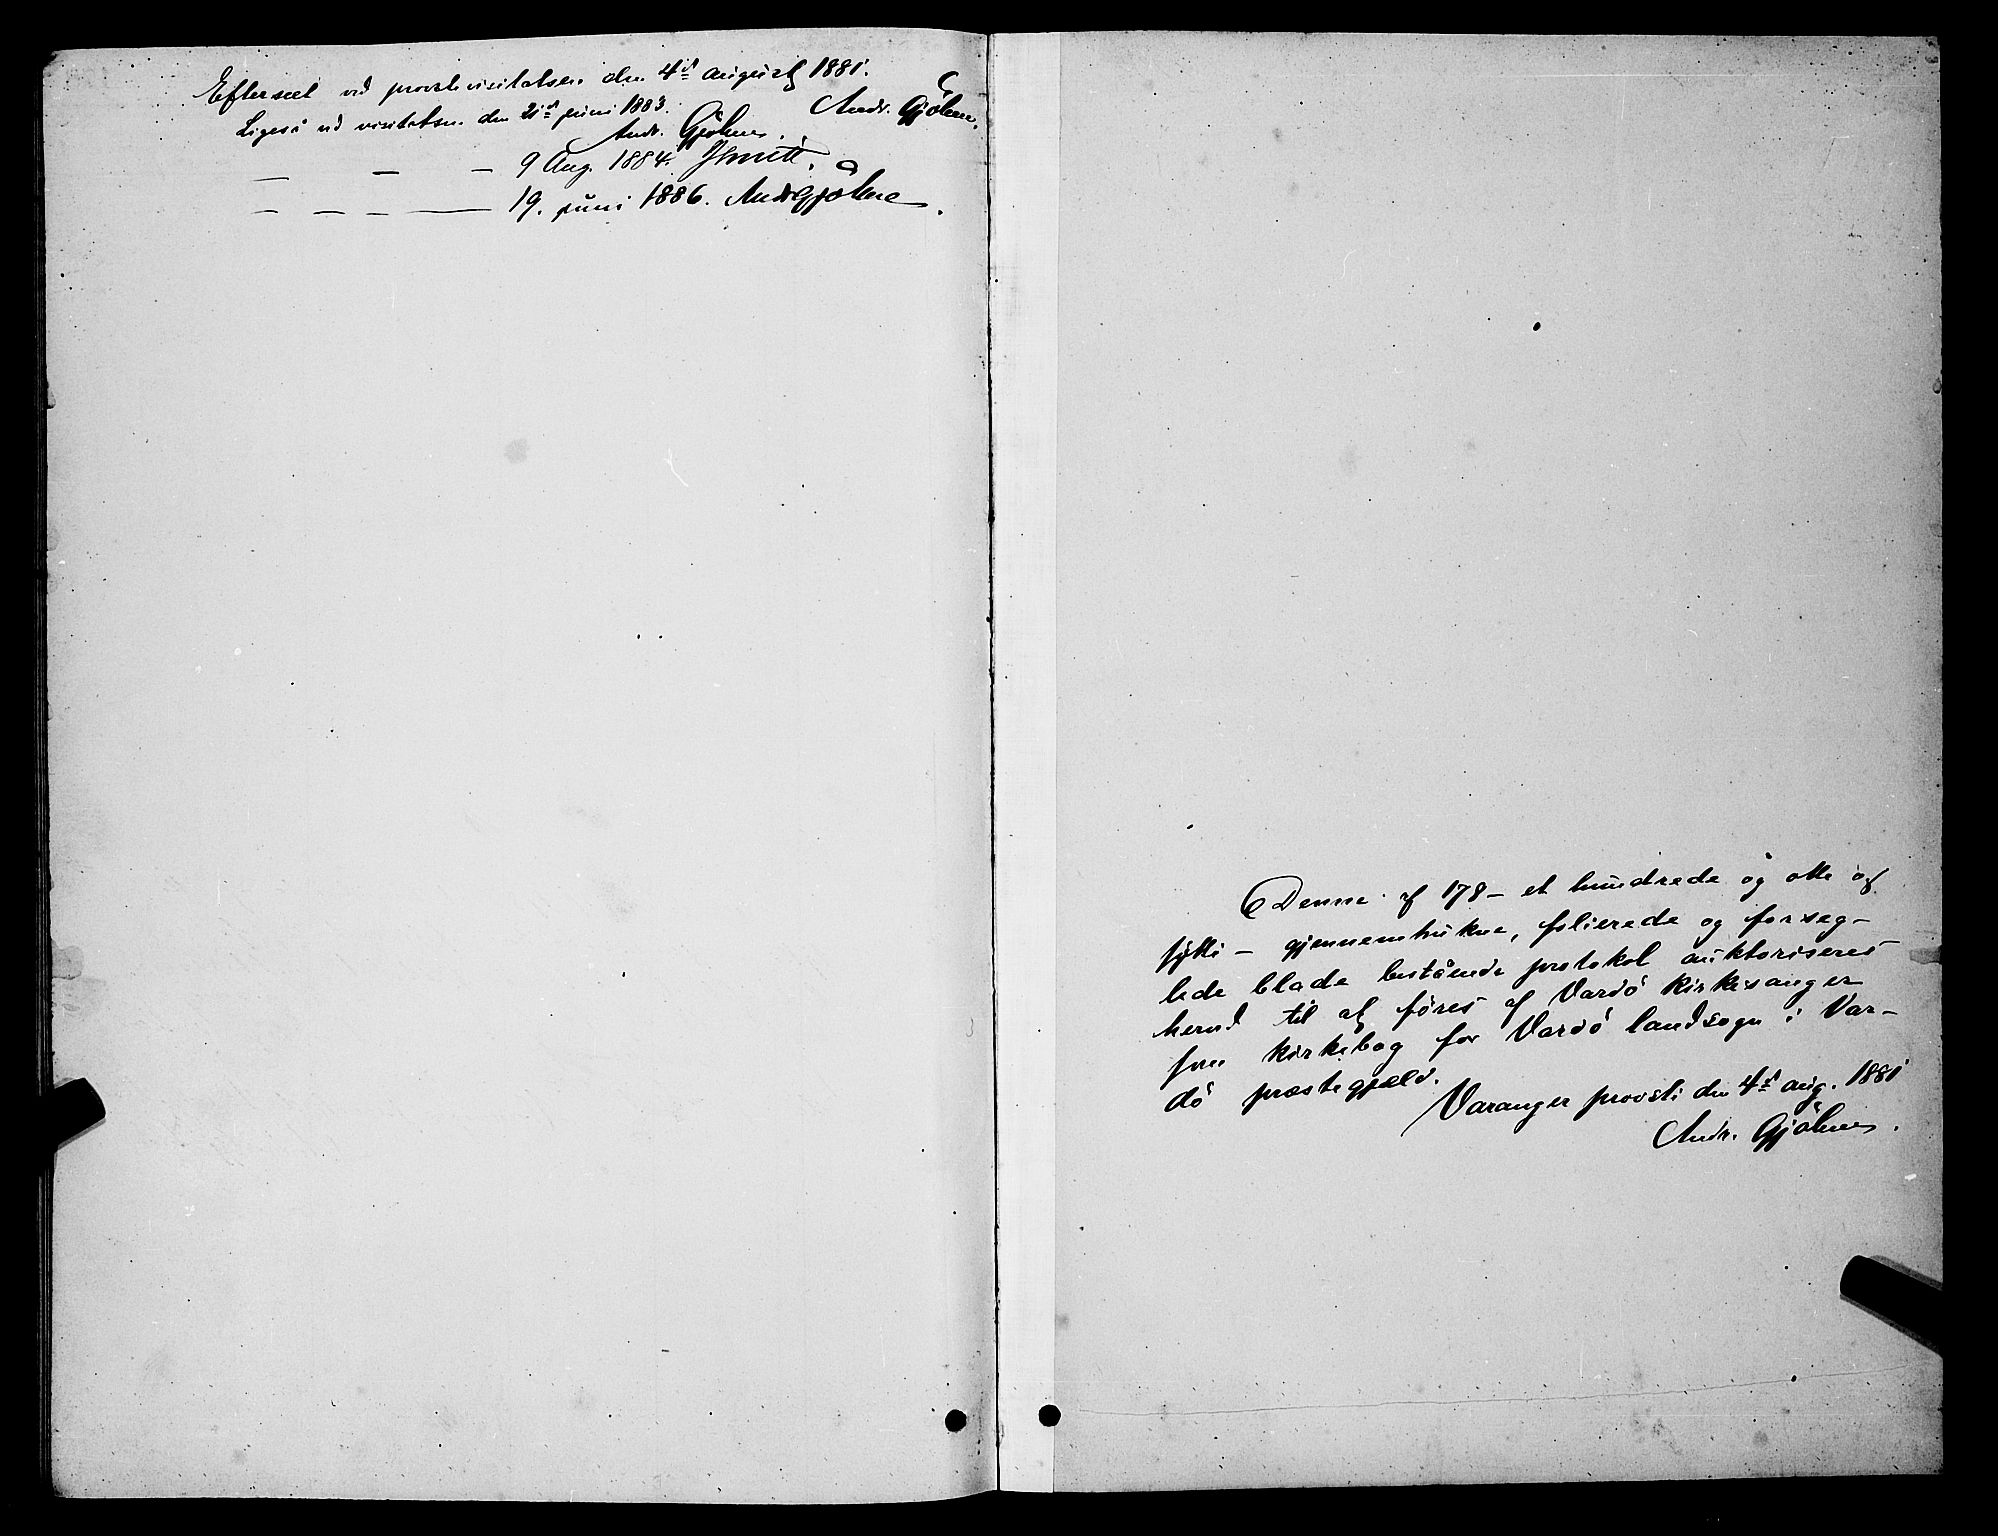 Efterseet ved provstevisitatsen den 4de august 1881.
Andr. Gjølme.
Ligeså ved visitatsen den 21de juni 1883.
Andr. Gjølme.
— — — 9 Aug. 1884. JSmitt.
— — — — 19. juni 1886. Andr Gjølme.
Denne af 178 – et hundrede og otte og
sytti – gjennemtrukne, folierede og forseg-
lede blade bestående protokol auktoriseres
herved til at føres af Vardø kirkesanger
som kirkebog for Vardø landsogn i Var-
dø præstegjæld.
Varanger provsti den 4de aug. 1881
Andr. Gjølme.